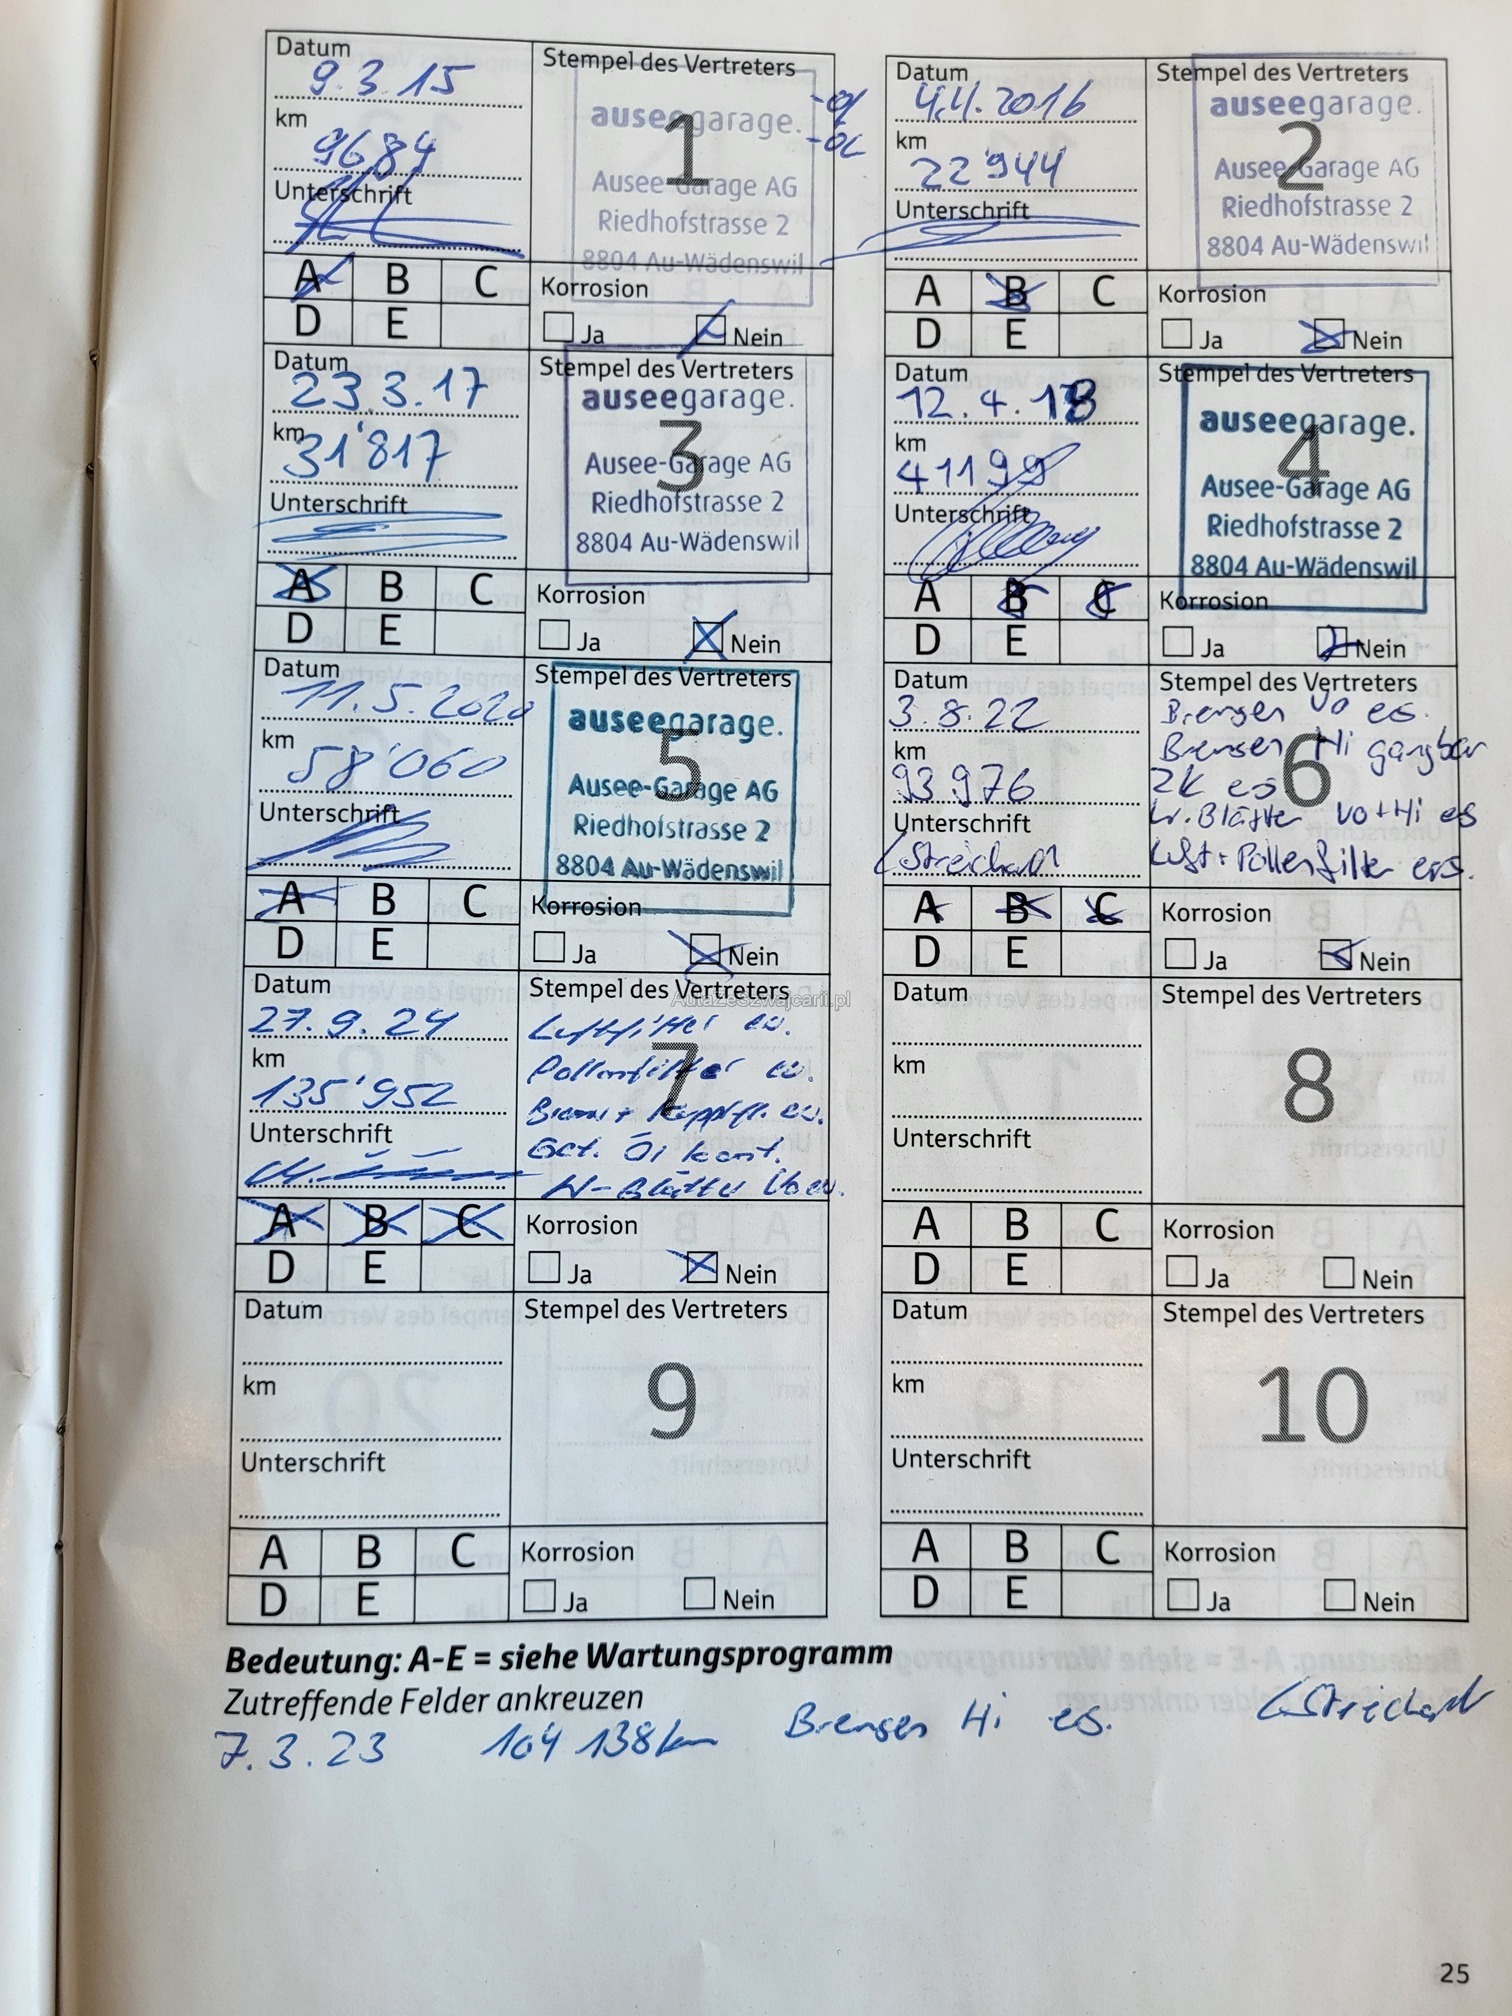 Datum
9.3.15
km
9684
Unterschrift
Stempel des Vertreters
auseegarage.
1
Ausee-Garage AG
Riedhofstrasse 2
8804 Au-Wädenswil
A B C
D E
Korrosion
Ja Nein
Datum
4.4.2016
km
22'944
Unterschrift
Stempel des Vertreters
auseegarage.
2
Ausee-Garage AG
Riedhofstrasse 2
8804 Au-Wädenswil
A B C
D E
Korrosion
Ja Nein
Datum
23.3.17
km
31'817
Unterschrift
Stempel des Vertreters
auseegarage.
3
Ausee-Garage AG
Riedhofstrasse 2
8804 Au-Wädenswil
A B C
D E
Korrosion
Ja Nein
Datum
12.4.18
km
41199
Unterschrift
Stempel des Vertreters
auseegarage.
4
Ausee-Garage AG
Riedhofstrasse 2
8804 Au-Wädenswil
A B C
D E
Korrosion
Ja Nein
Datum
11.5.2020
km
58'060
Unterschrift
Stempel des Vertreters
auseegarage.
5
Ausee-Garage AG
Riedhofstrasse 2
8804 Au-Wädenswil
A B C
D E
Korrosion
Ja Nein
Datum
3.8.22
km
93976
Unterschrift
Streichardt
Stempel des Vertreters
Bremsen Vo es.
Bremsen Hi gangbar
6
ZK es
W.Blätter Vo+Hi es
Luft+Pollenfilter ers.
A B C
D E
Korrosion
Ja Nein
Datum
27.9.24
km
135'952
Unterschrift
Stempel des Vertreters
AutazeSzwajcarii.pl
Luftfilter ew.
7
Pollenfilter ew.
ew.
Get. Öl kont.
W-Blätter Vo ew.
A B C
D E
Korrosion
Ja Nein
Datum
km
Unterschrift
Stempel des Vertreters
8
A B C
D E
Korrosion
Ja Nein
Datum
km
Unterschrift
Stempel des Vertreters
9
A B C
D E
Korrosion
Ja Nein
Datum
km
Unterschrift
Stempel des Vertreters
10
A B C
D E
Korrosion
Ja Nein
Bedeutung: A-E = siehe Wartungsprogramm
Zutreffende Felder ankreuzen
7.3.23 104 138km Bremsen Hi es. Streichardt
25